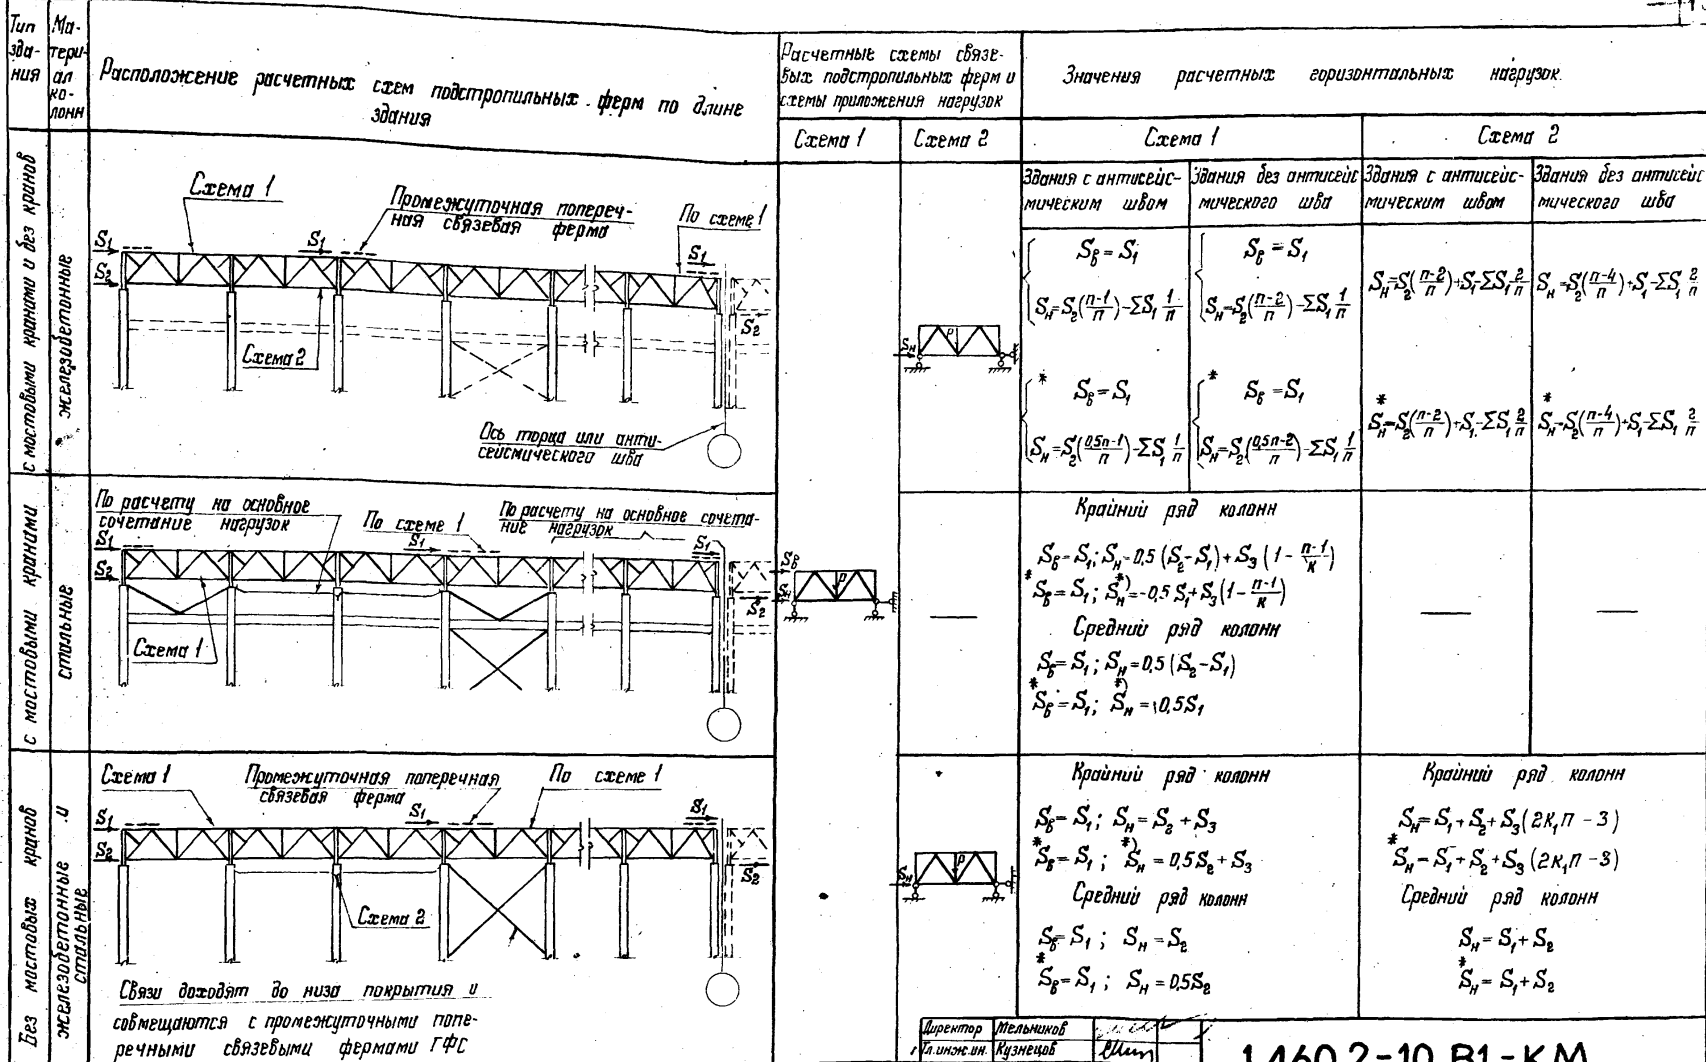 Тип
зда-
ния
Ма-
тери-
ал
ко-
лонн
Расположение расчетных схем подстропильных ферм по длине
здания
Расчетные схемы связе-
вых подстропильных ферм и
схемы приложения нагрузок
Значения расчетных горизонтальных нагрузок.
Схема 1
Схема 2
Схема 1
Схема 2
Здания с антисейс-
мическим швом
Здания без антисейс
мического шва
Здания с антисейс-
мическим швом
Здания без антисейс
мического шва
с мостовыми кранами и без кранов
железобетонные
Схема 1
Промежуточная попереч-
ная связевая ферма
По схеме 1
S₁
S₁
S₁
S₂
S₂
Схема 2
Ось торца или анти-
сейсмического шва
Sн
P
Sв = S₁
Sн=S₂((п-1)/п)-ΣS₁ 1/п
Sв = S₁
Sн=S₂((п-2)/п)-ΣS₁ 1/п
Sн=S₂((п-2)/п)+S₁-ΣS₁ 2/п
Sн=S₂((п-4)/п)+S₁-ΣS₁ 2/п
* Sв = S₁
Sн=S₂((0,5п-1)/п)-ΣS₁ 1/п
* Sв = S₁
Sн=S₂((0,5п-2)/п)-ΣS₁ 1/п
* Sн=S₂((п-2)/п)+S₁-ΣS₁ 2/п
* Sн=S₂((п-4)/п)+S₁-ΣS₁ 2/п
с мостовыми кранами
стальные
По расчету на основное
сочетание нагрузок
По схеме 1
По расчету на основное сочета-
ние нагрузок
S₁
S₁
S₁
S₂
S₂
Схема 1
Sв
Sн
P
Крайний ряд колонн
Sв=S₁; Sн=0,5(S₂-S₁)+S₃(1-(п-1)/к)
* Sв=S₁; Sн*)=-0,5S₁+S₃(1-(п-1)/к)
Средний ряд колонн
Sв=S₁; Sн=0,5(S₂-S₁)
* Sв=S₁; Sн*)=0,5S₁
Без мостовых кранов
железобетонные и
стальные
Схема 1
Промежуточная поперечная
связевая ферма
По схеме 1
S₁
S₁
S₁
S₂
S₂
Схема 2
Связи доходят до низа покрытия и
совмещаются с промежуточными попе-
речными связевыми фермами ГФС
Sн
P
Крайний ряд колонн
Sв=S₁; Sн=S₂+S₃
* Sв=S₁; Sн*)=0,5S₂+S₃
Средний ряд колонн
Sв=S₁; Sн=S₂
* Sв=S₁; Sн=0,5S₂
Крайний ряд колонн
Sн=S₁+S₂+S₃(2к₁п-3)
* Sн=S₁+S₂+S₃(2к₁п-3)
Средний ряд колонн
Sн=S₁+S₂
* Sн=S₁+S₂
Директор Мельников
Гл.инж.ин. Кузнецов
1.460.2-10.В1-КМ